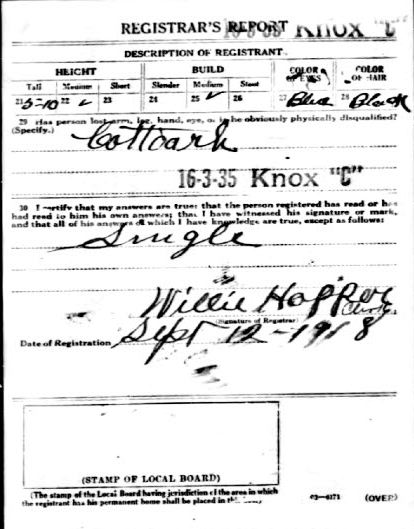 REGISTRAR'S REPORT 16-3-35 KNOX "C"
DESCRIPTION OF REGISTRANT.
HEIGHT BUILD COLOR OF EYES COLOR OF HAIR
Tall Medium Short Slender Medium Stout
21 5-10 22 ✓ 23 24 25 ✓ 26 27 Blue 28 Black
29 Has person lost arm, leg, hand, eye, or is he obviously physically disqualified?
(Specify.)
16-3-35 KNOX "C"
30. I certify that my answers are true; that the person registered has read or has
had read to him his own answers; that I have witnessed his signature or mark,
and that all of his answers of which I have knowledge are true, except as follows:
Single
Willie
(Signature of Registrar)
Date of Registration Sept 12-1918
(STAMP OF LOCAL BOARD)
(The stamp of the Local Board having jurisdiction of the area in which
the registrant has his permanent home shall be placed in this
03-6171 (OVER)